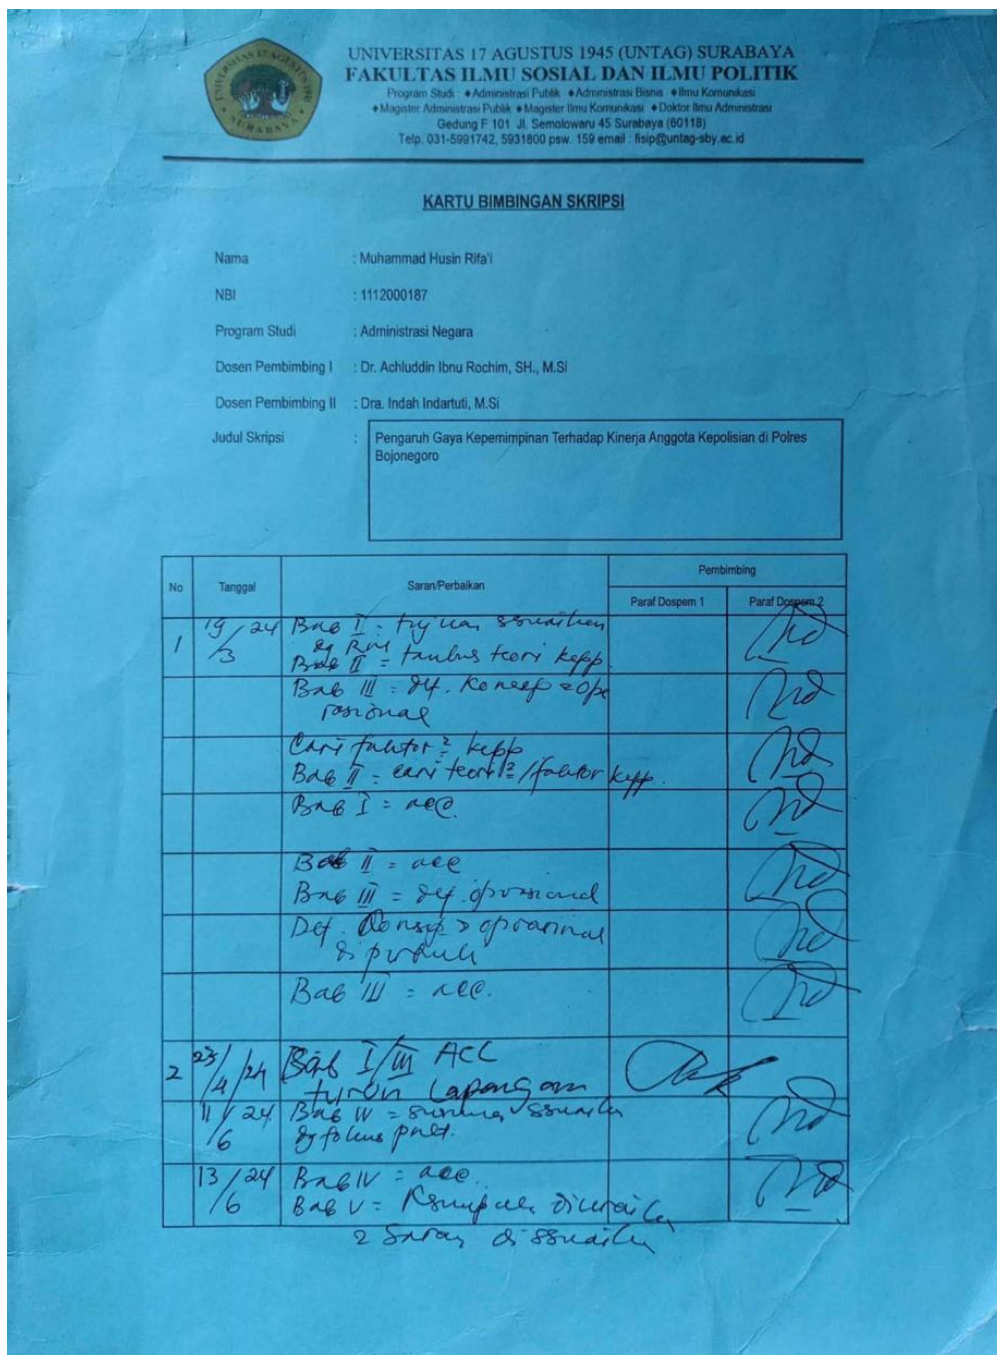 UNIVERSITAS 17 AGUSTUS 1945 (UNTAG) SURABAYA
FAKULTAS ILMU SOSIAL DAN ILMU POLITIK
Program Studi : ♦Administrasi Publik ♦Administrasi Bisnis ♦Ilmu Komunikasi
♦Magister Administrasi Publik ♦Magister Ilmu Komunikasi ♦Doktor Ilmu Administrasi
Gedung F 101 Jl. Semolowaru 45 Surabaya (60118)
Telp. 031-5991742, 5931800 psw. 159 email : fisip@untag-sby.ac.id
KARTU BIMBINGAN SKRIPSI
Nama : Muhammad Husin Rifa'i
NBI : 1112000187
Program Studi : Administrasi Negara
Dosen Pembimbing I : Dr. Achluddin Ibnu Rochim, SH., M.SI
Dosen Pembimbing II : Dra. Indah Indartuti, M.Si
Judul Skripsi : Pengaruh Gaya Kepemimpinan Terhadap Kinerja Anggota Kepolisian di Polres
Bojonegoro
No Tanggal Saran/Perbaikan Pembimbing
Paraf Dospem 1 Paraf Dospem 2
1 19/3 24 Bab I = tujuan sesuaikan
dg RM
Bab II = teori kepp
Bab III = def. Konsep = ope
rasional
Cari faktor2 kepp
Bab II = cari teori2/faktor kepp.
Bab I = acc.
Bab II = acc
Bab III = def. oprasional
Def. Konsep oprasional
Bab III = acc.
2 23/4/24 Bab I/III ACC
turun Lapangan
11/6 24 Bab IV = sesuaikan
dg fokus
13/6 24 Bab IV = acc
Bab V = diuraikan
2 Saran disesuaikan